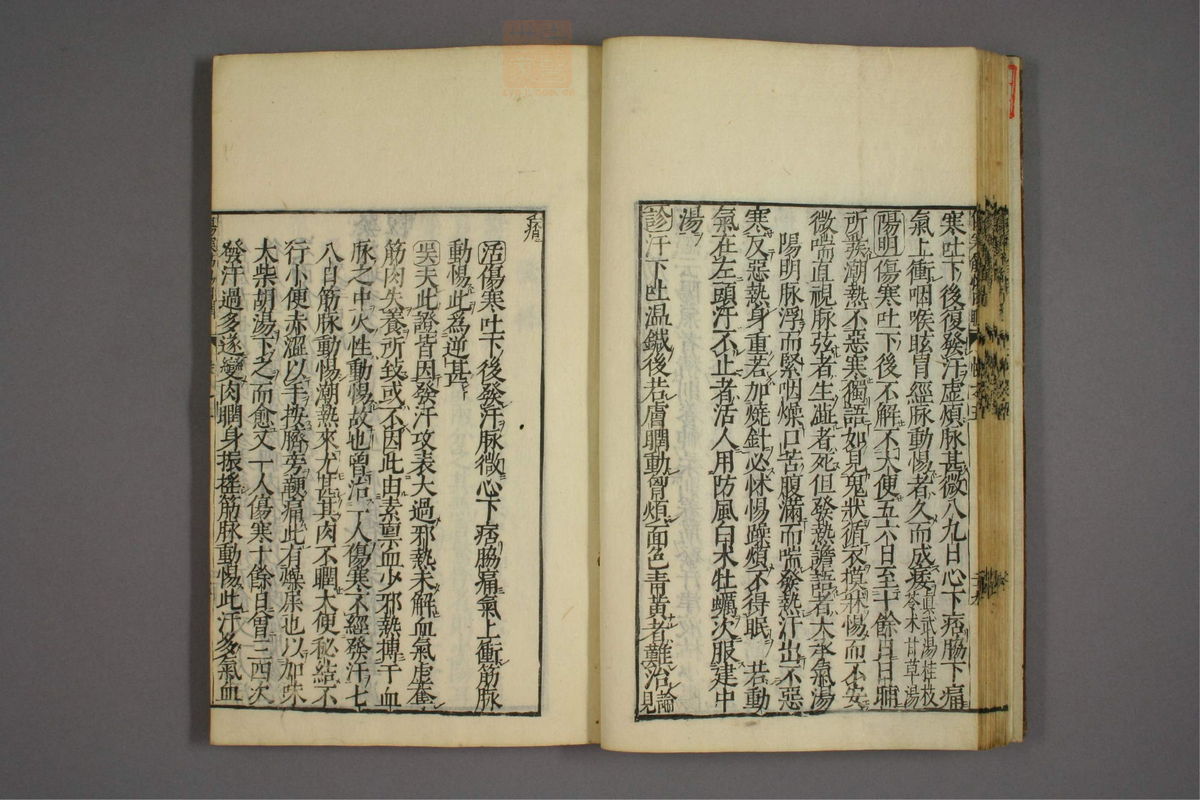 寒吐下後復發汗虛煩脉甚微八九日心下痞脇下痛
氣上衝咽喉眩冒經脉動惕者久而成痿真武湯桂枝苓木甘草湯
陽明傷寒吐下後不解不大便五六日至十餘日日晡
所發潮熱不惡寒獨語如見鬼狀循衣摸牀惕而不安
微喘直視脉弦者生濇者死但發熱譫語者大承氣湯
陽明脉浮而緊咽燥口苦腹滿而喘發熱汗出不惡
寒反惡熱身重若加燒針必怵惕躁煩不得眠 若動
氣在左頭汗不止者活人用防風白木牡蠣次服建中
湯
診汗下吐温鍼後若膚瞤動胷煩面色青黃者難治論見
痟
活傷寒吐下後發汗脉微心下痞脇痛氣上衝筋脉
動惕此爲逆甚
吴夫此證皆因發汗攻表大過邪熱未解血氣虛奪
筋肉失養所致或不因此由素稟血少邪熱搏于血
脉之中火性動惕故也曾治一人傷寒不經發汗七
八日筋脉動惕潮熱來尤甚其肉不瞤大便秘結不
行小便赤澀以手按臍旁鞕痛此有燥屎也以加味
大柴胡湯下之而愈又一人傷寒十餘日曾三四次
發汗過多遂變肉瞤身振搖筋脉動惕此汗多氣血